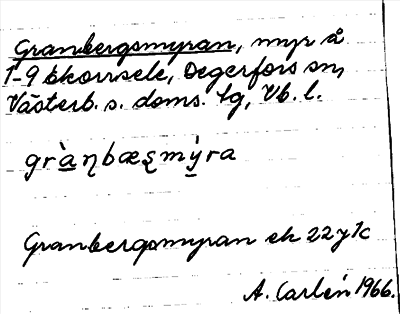 Granbergsmyran, myr å
1-9 Ekorrsele, Degerfors sn,
Västerb. s. doms. lg, Vb. l.
grànbæʂmýra
Granbergsmyran ek 22y1c
A. Carlén 1966.